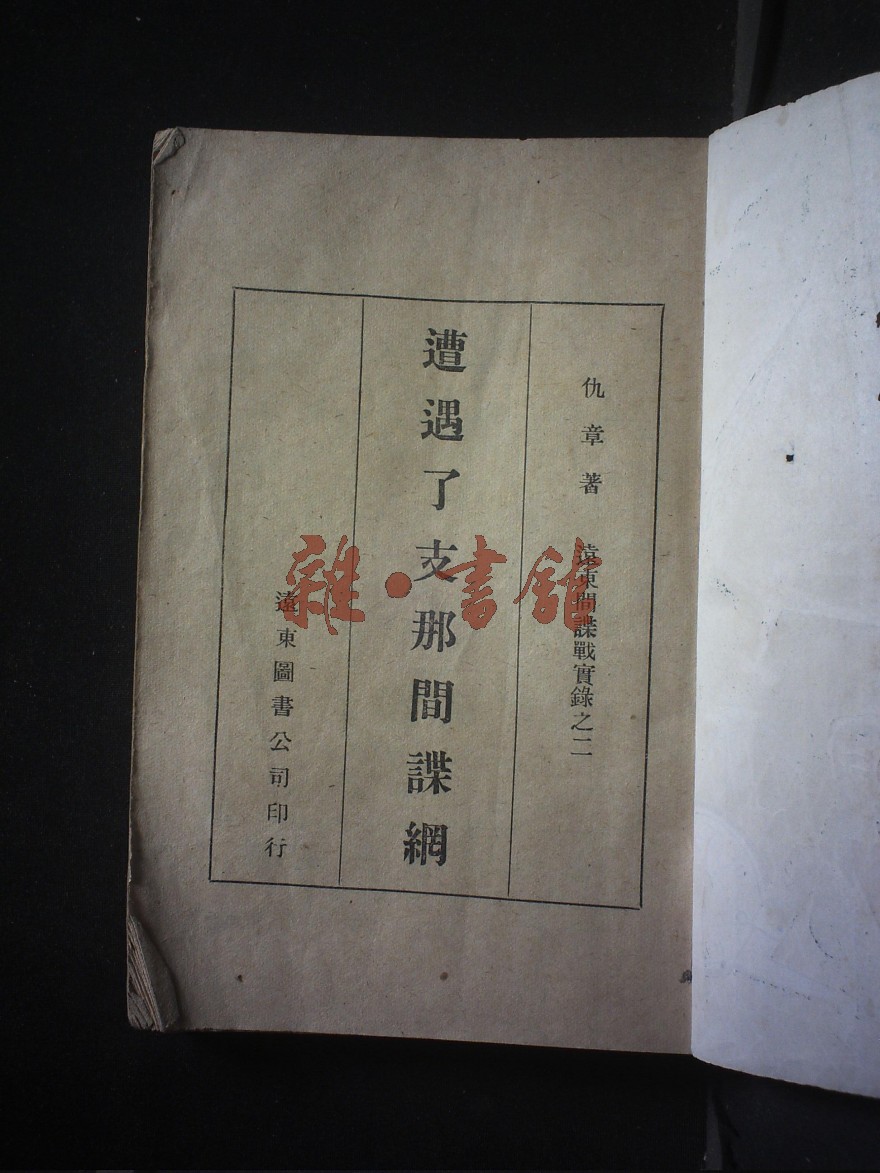 仇章著 遠東間諜戰實錄之二
遭遇了支那間諜網
遠東圖書公司印行
雜·書館